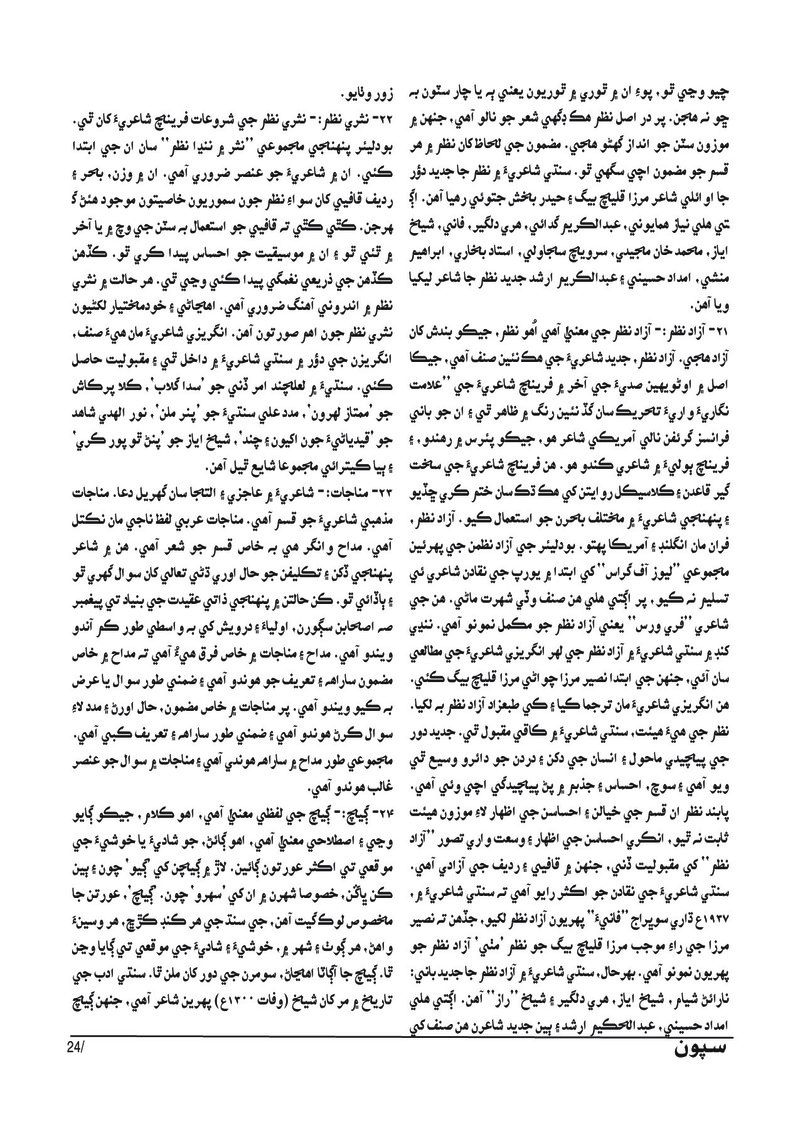 چيو وڃي ٿو. پوءِ ان ۾ ٿوري ۾ ٿوريون يعني ٻه يا چار سٽون به
ڇو نه هجن. پر در اصل نظم هڪ ڊگهي شعر جو نالو آهي، جنهن ۾
موزون سٽن جو انداز گهڻو هجي. مضمون جي لحاظ کان نظم ۾ هر
قسم جو مضمون اچي سگهي ٿو. سنڌي شاعريءَ ۾ نظم جا جديد دؤر
جا اوائلي شاعر مرزا قليچ بيگ ۽ حيدر بخش جتوئي رهيا آهن. اڳ
تي هلي نياز همايوني، عبدالڪريم گدائي، هري دلگير، فاني، شيخ
اياز، محمد خان مجيدي، سرويچ سجاولي، استاد بخاري، ابراهيم
منشي، امداد حسيني ۽ عبدالڪريم ارشد جديد نظم جا شاعر ليکيا
ويا آهن.
۲۱- آزاد نظر:- آزاد نظر جي معنيٰ آهي اُهو نظر، جيڪو بندش کان
آزاد هجي. آزاد نظر، جديد شاعريءَ جي هڪ نئين صنف آهي، جيڪا
اصل ۾ اوڻويهين صديءَ جي آخر ۾ فرينچ شاعريءَ جي ''علامت
نگاريءَ واريءَ تحريڪ سان گڏ نئين رنگ ۾ ظاهر ٿي ۽ ان جو باني
فرانسز گرئفن نالي آمريڪي شاعر هو، جيڪو پئرس ۾ رهندو، ۽
فرينچ ٻوليءَ ۾ شاعري ڪندو هو. هن فرينچ شاعريءَ جي سخت
گير قاعدن ۽ ڪلاسيڪل روايتن کي هڪ ڌڪ سان ختم ڪري ڇڏيو
۽ پنهنجي شاعريءَ ۾ مختلف بحرن جو استعمال ڪيو. آزاد نظر،
فران مان انگلنڊ ۽ آمريڪا پهتو. بودليئر جي آزاد نظمن جي پهرئين
مجموعي ''ليوز آف گراس'' کي ابتدا ۾ يورپ جي نقادن شاعري ئي
تسليم نه ڪيو، پر اڳتي هلي هن صنف وڏي شهرت ماڻي. هن جي
شاعري ''فري ورس'' يعني آزاد نظر جو مڪمل نمونو آهي. ننڍي
کنڊ ۾ سنڌي شاعريءَ ۾ آزاد نظر جي لهر انگريزي شاعريءَ جي مطالعي
سان آئي، جنهن جي ابتدا نصير مرزا چواڻي مرزا قليچ بيگ ڪئي.
هن انگريزي شاعريءَ مان ترجما ڪيا ۽ ڪي طبعزاد آزاد نظر به لکيا.
نظر جي هيءَ هيئت، سنڌي شاعريءَ ۾ ڪافي مقبول ٿي. جديد دور
جي پيچيدي ماحول ۽ انسان جي دکن ۽ دردن جو دائرو وسيع ٿي
ويو آهي ۽ سوچ، احساس ۽ جذبم ۾ پڻ پيچيدگي اچي وئي آهي.
پابند نظر ان قسم جي خيالن ۽ احساسن جي اظهار لاءِ موزون هيئت
ثابت نه ٿيو، انڪري احساسن جي اظهار ۽ وسعت واري تصور ''آزاد
نظر'' کي مقبوليت ڏني، جنهن ۾ قافيي ۽ رديف جي آزادي آهي.
سنڌي شاعريءَ جي نقادن جو اڪثر رايو آهي ته سنڌي شاعريءَ ۾،
۱۹۳۷ع ڌاري سوڀراج ''فانيءَ'' پهريون آزاد نظر لکيو، جڏهن ته نصير
مرزا جي راءِ موجب مرزا قليچ بيگ جو نظر 'مٽي' آزاد نظر جو
پهريون نمونو آهي. بهرحال، سنڌي شاعريءَ ۾ آزاد نظر جا جديد باني:
نارائڻ شيام، شيخ اياز، هري دلگير ۽ شيخ ''راز'' آهن. اڳتي هلي
امداد حسيني، عبدالحڪيم ارشد ۽ ٻين جديد شاعرن هن صنف کي
زور وٺايو.
۲۲- نثري نظر:- نثري نظر جي شروعات فرينچ شاعريءَ کان ٿي.
بودليئر پنهنجي مجموعي ''نثر ۾ ننڍا نظر'' سان ان جي ابتدا
ڪئي. ان ۾ شاعريءَ جو عنصر ضروري آهي. ان ۾ وزن، بحر ۽
رديف قافيي کان سواءِ نظر جون سموريون خاصيتون موجود هئڻ گ
هرجن. ڪٿي ڪٿي ته قافيي جو استعمال به سٽن جي وچ ۾ يا آخر
۾ ٿئي ٿو ۽ ان ۾ موسيقيت جو احساس پيدا ڪري ٿو. ڪڏهن
ڪڏهن جي ذريعي نغمگي پيدا ڪئي وڃي ٿي. هر حالت ۾ نثري
نظر ۾ اندروني آهنگ ضروري آهي. اهڃاڻي ۽ خودمختيار لکڻيون
نثري نظر جون اهم صورتون آهن. انگريزي شاعريءَ مان هيءَ صنف،
انگريزن جي دؤر ۾ سنڌي شاعريءَ ۾ داخل ٿي ۽ مقبوليت حاصل
ڪئي. سنڌيءَ ۾ لعلچند امر ڏني جو 'سدا گلاب'، ڪلا پرڪاش
جو 'ممتاز لهرون'، مدد علي سنڌيءَ جو 'پنر ملن'، نور الهدي شاهد
جو 'قيدياڻيءَ جون اکيون ۽ چنڊ'، شيخ اياز جو 'پنڻ ٿو پور ڪري'
۽ ٻيا ڪيترائي مجموعا شايع ٿيل آهن.
۲۳- مناجات:- شاعريءَ ۾ عاجزي ۽ التجا سان گهريل دعا. مناجات
مذهبي شاعريءَ جو قسم آهي. مناجات عربي لفظ ناجي مان نڪتل
آهي. مداح وانگر هي به خاص قسم جو شعر آهي. هن ۾ شاعر
پنهنجي ڏکن ۽ تڪليفن جو حال اوري ڌڻي تعالي کان سوال گهري ٿو
۽ ٻاڏائي ٿو. ڪن حالتن ۾ پنهنجي ذاتي عقيدت جي بنياد تي پيغمبر
صه اصحابن سڳورن، اولياءَ ۽ درويش کي به واسطي طور ڪم آندو
ويندو آهي. مداح ۽ مناجات ۾ خاص فرق هيءُ آهي ته مداح ۾ خاص
مضمون ساراهه ۽ تعريف جو هوندو آهي ۽ ضمني طور سوال يا عرض
به ڪيو ويندو آهي. پر مناجات ۾ خاص مضمون، حال اورڻ ۽ مدد لاءِ
سوال ڪرڻ هوندو آهي ۽ ضمني طور ساراهه ۽ تعريف ڪبي آهي.
مجموعي طور مداح ۾ ساراهه هوندي آهي ۽ مناجات ۾ سوال جو عنصر
غالب هوندو آهي.
۲۴- ڳيچ:- ڳيچ جي لفظي معنيٰ آهي، اهو ڪلام، جيڪو ڳايو
وڃي ۽ اصطلاحي معنيٰ آهي، اهو ڳائڻ، جو شاديءَ يا خوشيءَ جي
موقعي تي اڪثر عورتون ڳائين. لاڙ ۾ ڳيچن کي 'ڳيو' چون ۽ ٻين
ڪن ڀاڱن، خصوصا شهرن ۾ ان کي 'سهرو' چون. 'ڳيچ'، عورتن جا
مخصوص لوڪ گيت آهن، جي سنڌ جي هر ڪنڊ ڪڙڇ، هر وسينءَ
واهڻ، هر ڳوٺ ۽ شهر ۾، خوشيءَ ۽ شاديءَ جي موقعي تي ڳايا وڃن
ٿا. ڳيچ جا آڳاٽا اهڃاڻ، سومرن جي دور کان ملن ٿا. سنڌي ادب جي
تاريخ ۾ مرکان شيخ (وفات ۱۳۰۰ع) پهرين شاعر آهي، جنهن ڳيچ
سپون
24/